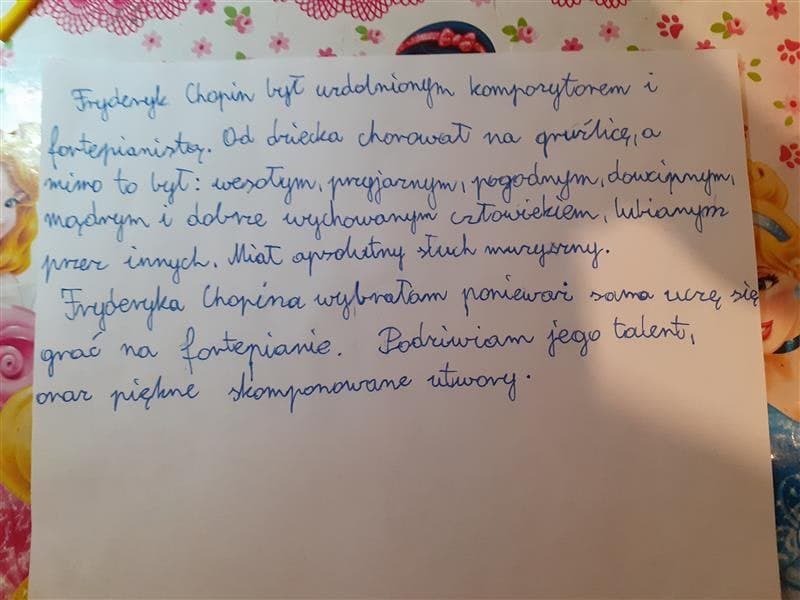 Fryderyk Chopin był uzdolnionym kompozytorem i
fortepianistą. Od dziecka chorował na gruźlicę, a
mimo to był: wesołym, przyjaznym, pogodnym, dowcipnym,
mądrym i dobrze wychowanym człowiekiem, lubianym
przez innych. Miał apsolutny słuch muzyszny.
Fryderyka Chopina wybrałam ponieważ sama uczę się
grać na fortepianie. Podziwiam jego talent,
oraz piękne skomponowane utwory.